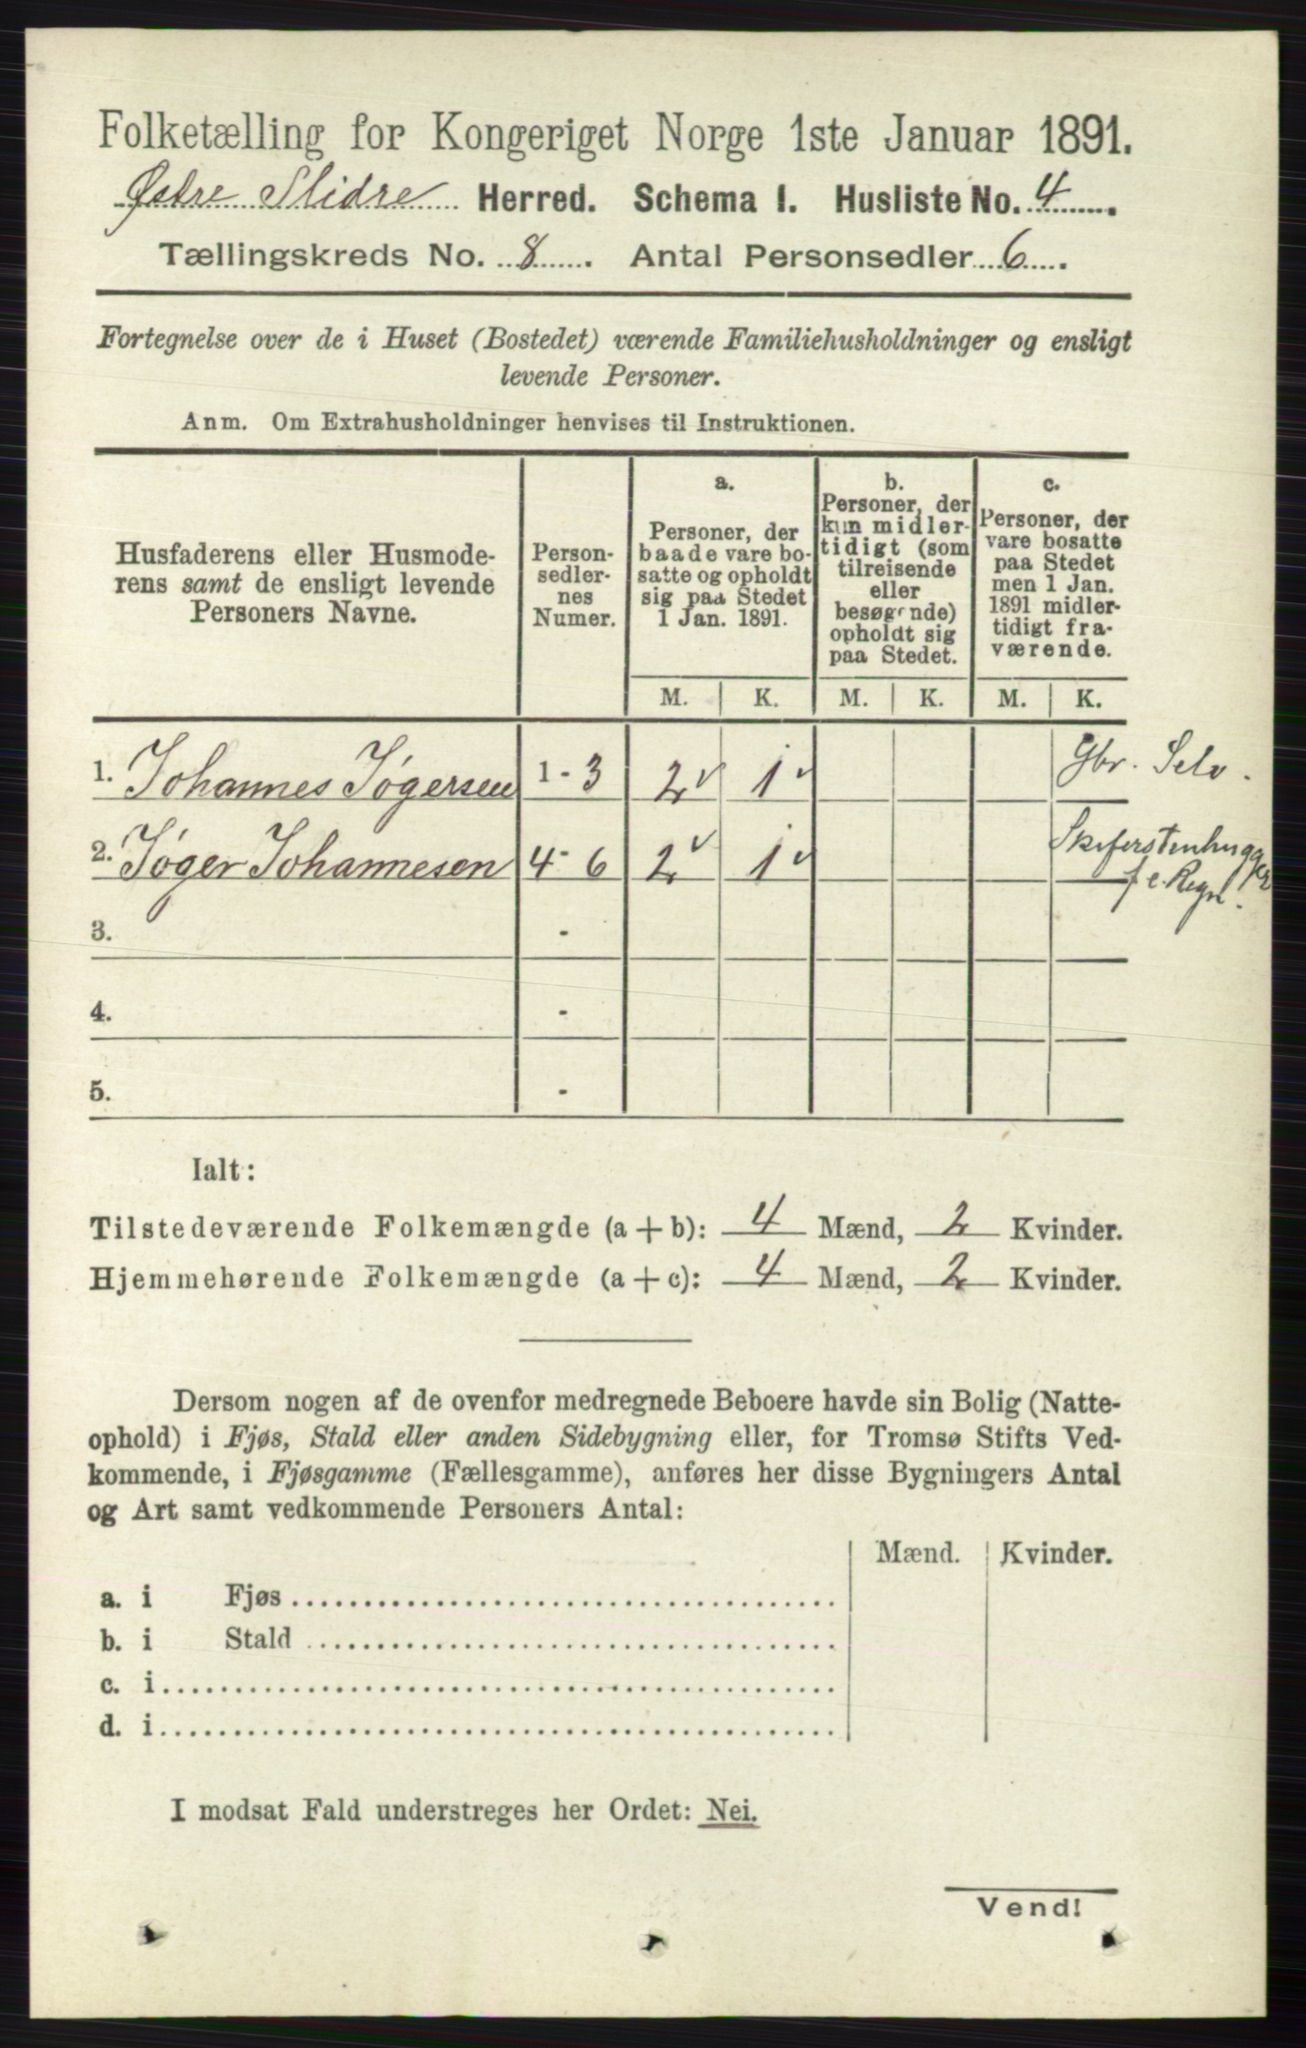 Folketælling for Kongeriget Norge 1ste Januar 1891.
Østre Slidre Herred. Schema I. Husliste No. 4
Tællingskreds No. 8. Antal Personsedler 6.
Fortegnelse over de i Huset (Bostedet) værende Familiehusholdninger og ensligt
levende Personer.
Anm. Om Extrahusholdninger henvises til Instruktionen.
Husfaderens eller Husmode-
rens samt de ensligt levende
Personers Navne.
Person-
sedler-
nes
Numer.
a.
Personer, der
baade vare bo-
satte og opholdt
sig paa Stedet
1 Jan. 1891.
b.
Personer, der
kun midler-
tidigt (som
tilreisende
eller
besøgende)
opholdt sig
paa Stedet.
c.
Personer, der
vare bosatte
paa Stedet
men 1 Jan.
1891 midler-
tidigt fra-
værende.
M. K. M. K. M. K.
1. Johannes Jøgersen 1 - 3 2 1 Gbr. Selv.
2. Jøger Johannesen 4 - 6 2 1 Skiferstenhugger
f. e. Regn.
3. -
4. -
5. -
Ialt:
Tilstedeværende Folkemængde (a + b): 4 Mænd, 2 Kvinder.
Hjemmehørende Folkemængde (a + c): 4 Mænd, 2 Kvinder.
Dersom nogen af de ovenfor medregnede Beboere havde sin Bolig (Natte-
ophold) i Fjøs, Stald eller anden Sidebygning eller, for Tromsø Stifts Ved-
kommende, i Fjøsgamme (Fællesgamme), anføres her disse Bygningers Antal
og Art samt vedkommende Personers Antal:
Mænd. Kvinder.
a. i Fjøs
b. i Stald
c. i
d. i
I modsat Fald understreges her Ordet: Nei.
Vend!